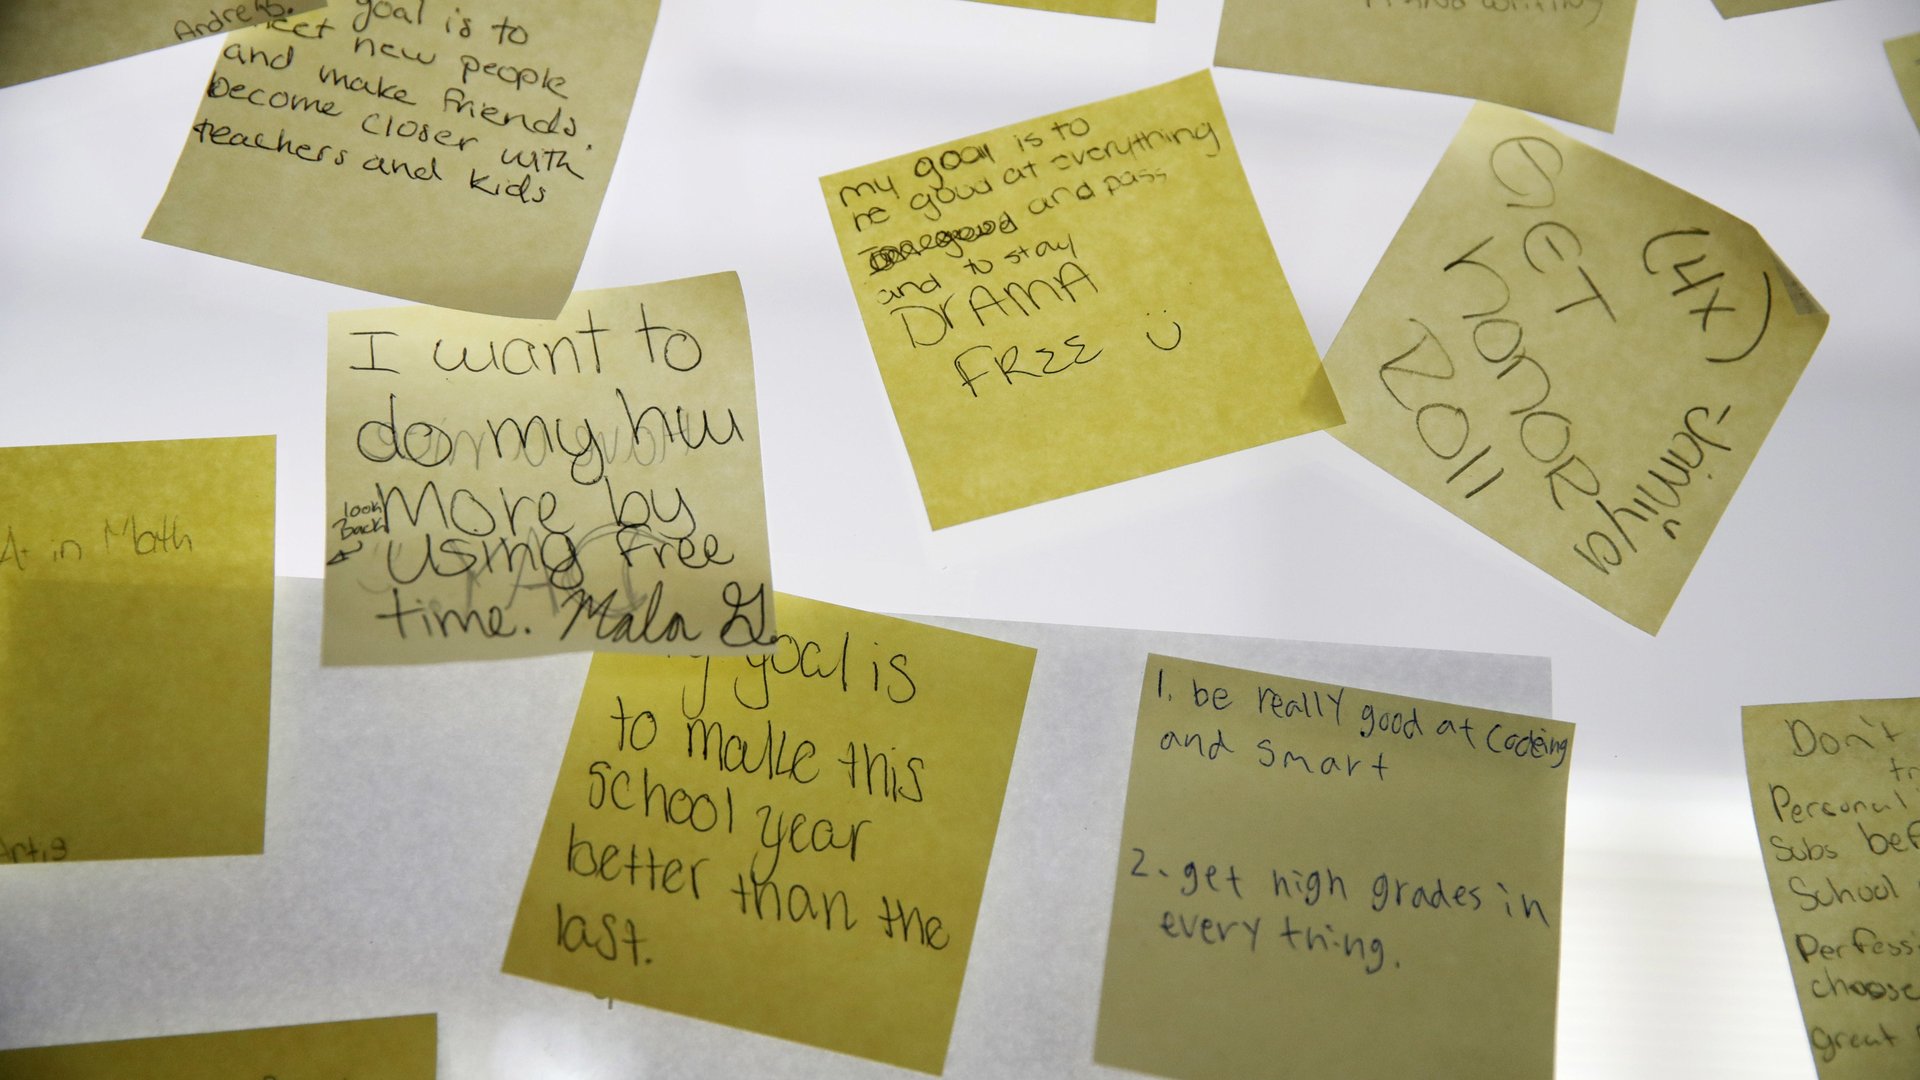 Andre B.
goal is to
meet new people
and make friends.
become closer with
teachers and kids
Handwriting
my goal is to
be good at everything
and pass
and to stay
DrAMA
FREE
GET
honoR
Roll
(4x)
-Jamiya
I want to
do my hw
more by
using free
time. Mala G.
look
Back
A+ in Math
Artis
goal is
to make this
school year
better than the
last.
1. be really good at codeing
and smart
2. get high grades in
every thing.
Don't
Personal
Subs bef
School
Perfessi
choose
great